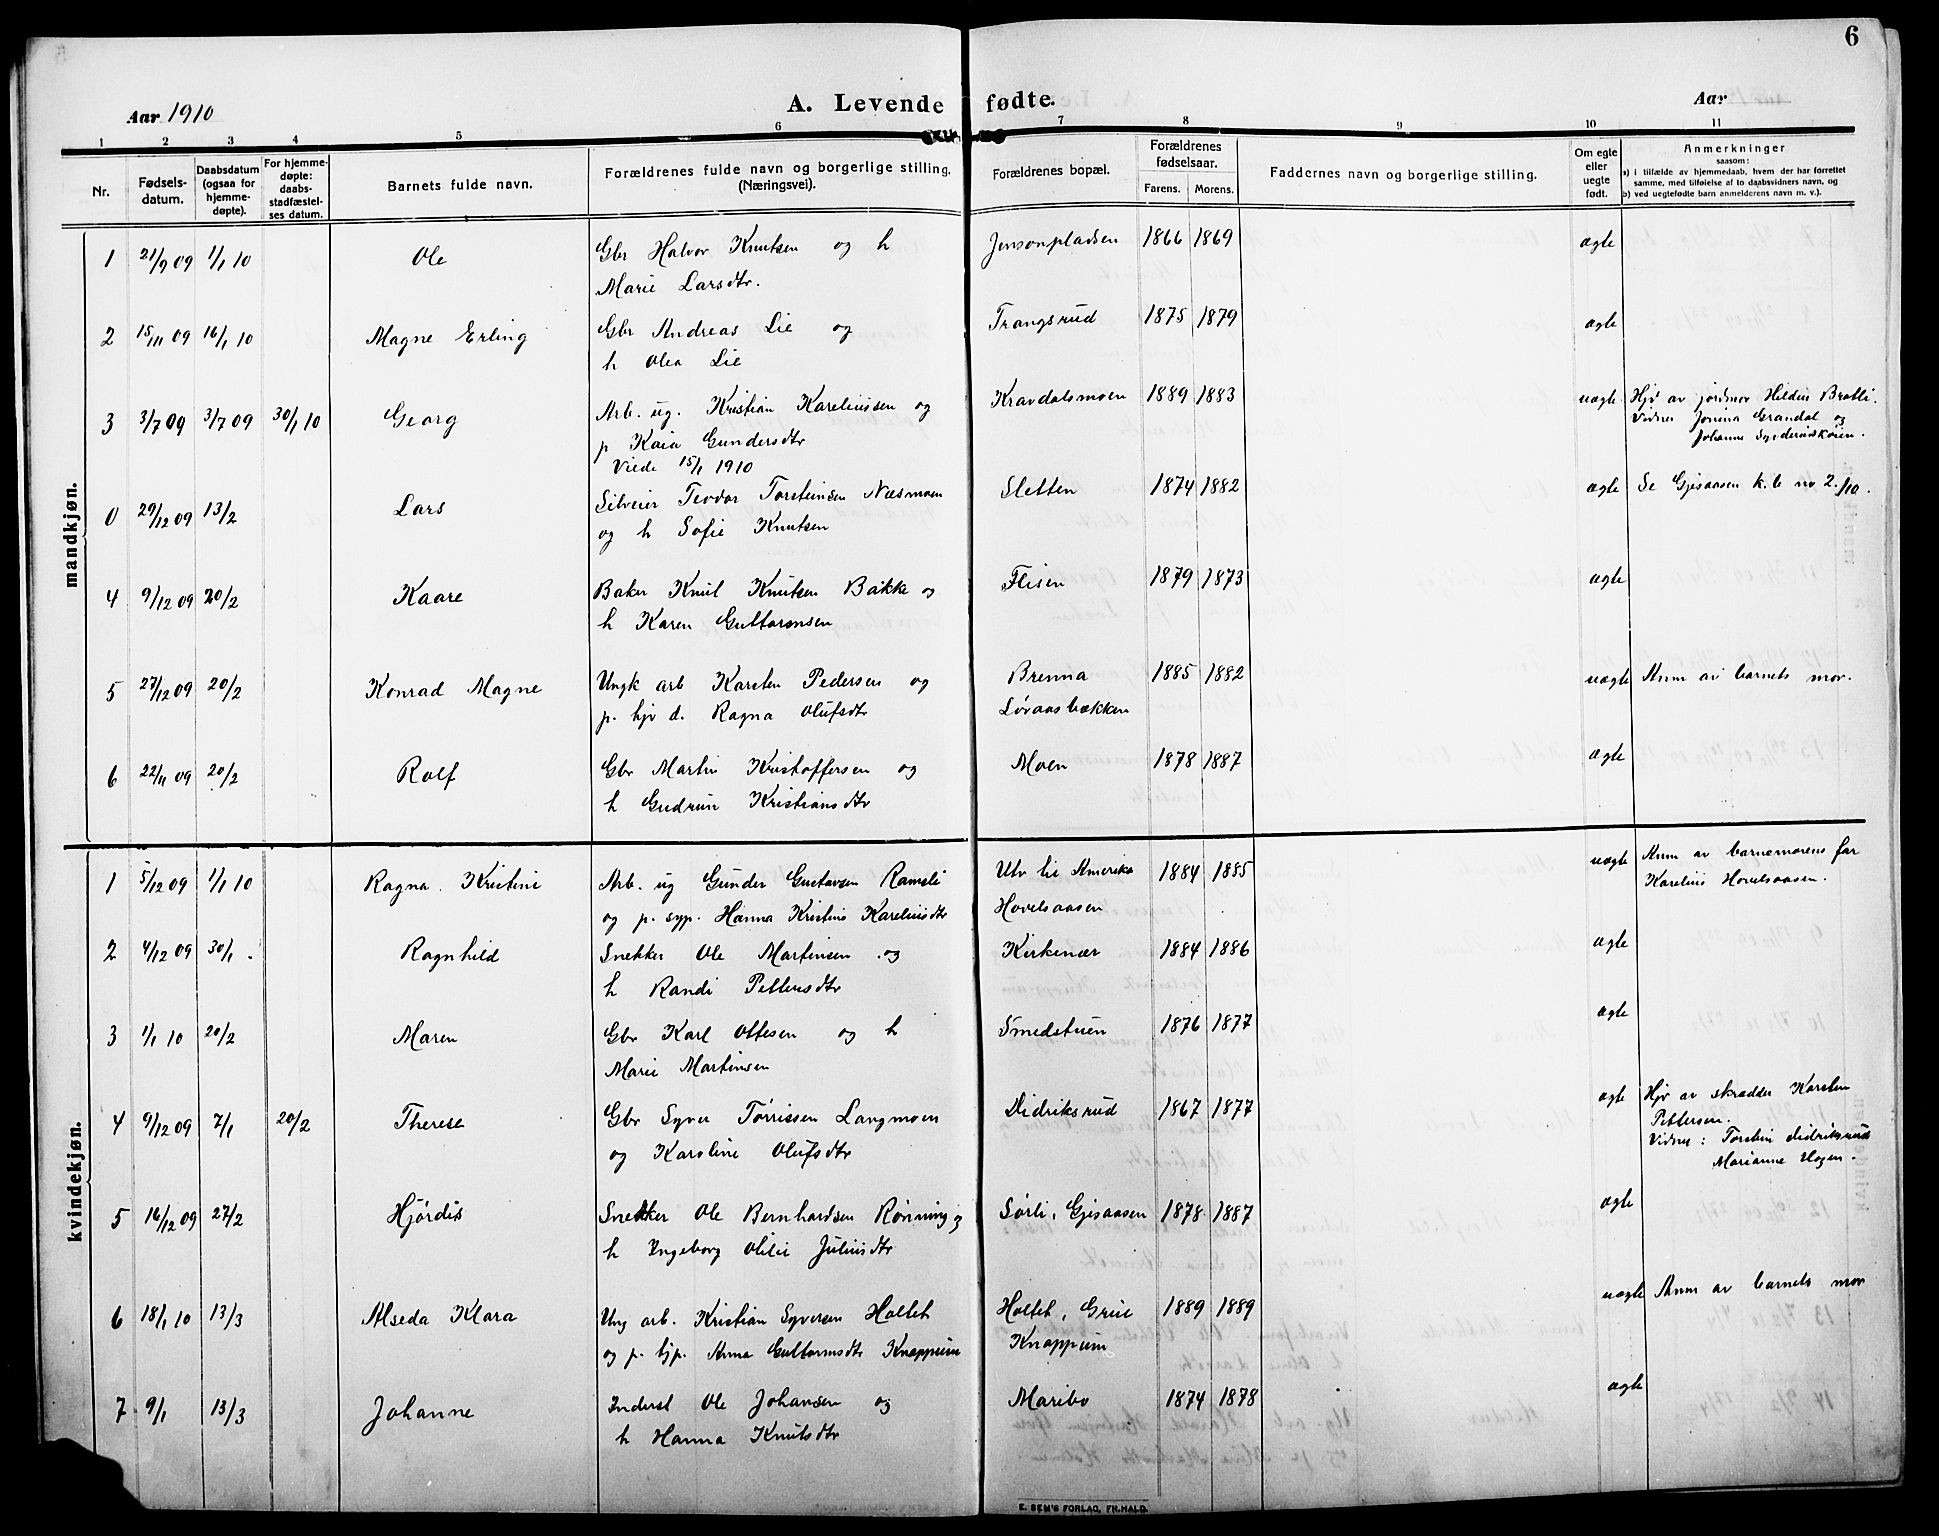 6
Aar 1910
A. Levende fødte.
Aar
1 2 3 4 5 6 7 8 9 10 11
Nr.
Fødsels-
datum.
Daabsdatum
(ogsaa for
hjemme-
døpte).
For hjemme-
døpte:
daabs-
stadfæstel-
ses datum.
Barnets fulde navn.
Forældrenes fulde navn og borgerlige stilling.
(Næringsvei).
Forældrenes bopæl.
Forældrenes
fødselsaar.
Farens. Morens.
Faddernes navn og borgerlige stilling.
Om egte
eller
uegte
født.
Anmerkninger
saasom:
a) i tilfælde av hjemmedaab, hvem der har forrettet
samme, med tilføielse af to daabsvidners navn, og
b) ved uegtefødte barn anmelderens navn m. v.).
mandkjøn.
1 21/9 09 1/1 10 Ole Gbr Halvor Knutsen og h Jensonpladsen 1866 1869 ægte
Marie Larsdtr.
2 15/11 09 16/1 10 Magne Erling Gbr Andreas Lie og Trangsrud 1875 1879 ægte
h Olea Lie
3 3/7 09 3/7 09 30/1 10 Georg Arb. ug. Kristian Kareliussen og Kravdalsmoen 1889 1883 uægte Hjd av jordmor Hildus Bratli.
p Kaia Gundersdtr Vidner Jonina Grandal og
Viede 15/1 1910 Johanne
0 29/12 09 13/2 Lars Teodor Torsteinsen Næsmoen Sletten 1874 1882 ægte Se Gjesaasen k.b nr 2./10.
og h Sofie Knutsen
4 9/12 09 20/2 Kaare Baker Knut Knutsen Bakke og Flisen 1879 1873 ægte
h Karen Guttormsen
5 27/12 09 20/2 Konrad Magne Ungk arb Karsten Pedersen og Brenna 1885 1882 uægte Anm av barnets mor.
p. hjv d. Ragna Olufsdtr Løvaasbækken
6 22/11 09 20/2 Rolf Gbr Martin Kristoffersen og Moen 1878 1887 ægte
h Gudrun Kristiansdtr
kvindekjøn.
1 5/12 09 1/1 10 Ragna Kristine Arb. ug Gunder Gustavsen Ramsli Utv til Amerika 1884 1885 uægte Anm av barnemorens far
og p. syp. Hanna Kristine Kareliusdtr Hovelsaasen Karelius Hovelsaasen.
2 4/12 09 30/1 . Ragnhild Snekker Ole Martinsen og Kirkenær 1884 1886 ægte
h Randi Pettersdtr
3 1/1 10 20/2 Maren Gbr Karl Ottesen og h Smedstuen 1876 1877 ægte
Marie Martinsen
4 9/12 09 7/1 20/2 Therese Gbr Syver Tørrissen Langmoen Didriksrud 1867 1877 ægte Hjd av skrædder Karsten
og Karoline Olufsdtr Pettersen.
Vidner: Torstein Didriksrud
Marianne Hagen.
5 16/12 09 27/2 Hjördis Snekker Ole Bernhardsen Rønning og Sørli, Gjesaasen 1878 1887 ægte
h Ingeborg Otilie Juliusdtr
6 18/1 10 13/3 Alseda Klara Ung arb. Kristian Syversen Holtet Holtet, Grue 1889 1889 uægte Anm av barnets mor
og p. tjp. Anna Guttormsdtr Knappum Knappum
7 9/1 13/3 Johanne Inderst Ole Johansen og Maribo 1874 1878 ægte
h Hanna Knutsdtr
E. SEM'S FORLAG, FR.HALD.